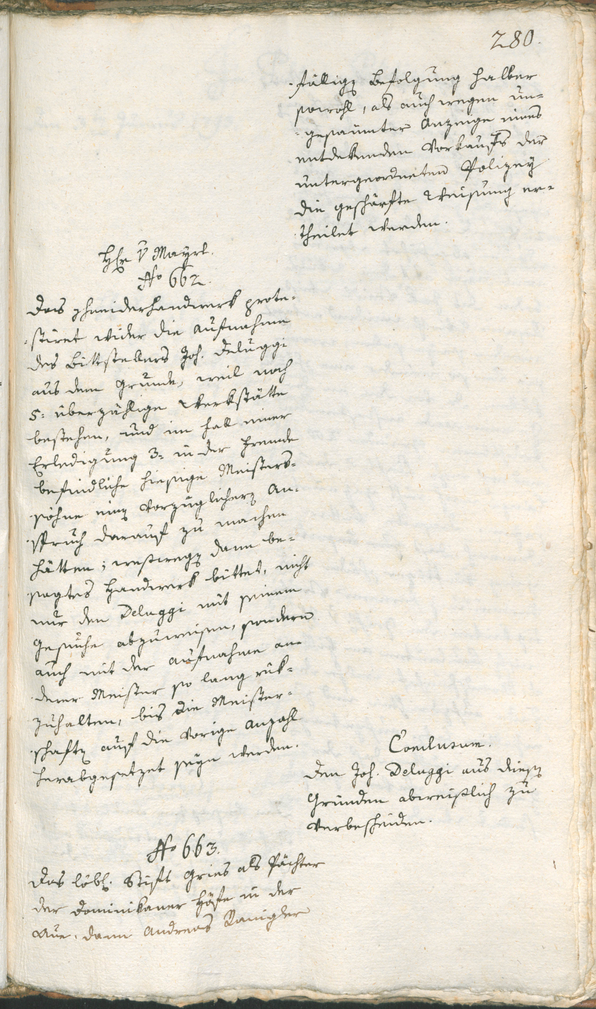 280.
fällige Befolgung halber
sowohl, als auch wegen un-
gesaumter Anzeige eines
entdekenden Vorkaufs der
untergeordneten Polizey
die geschärfte Weisung er-
theilet werden.
Hr. v Mayrl.
No 662.
Das Schneiderhandwerk prote-
stiret wider die Aufnahme
des Bittstellers Joh. Deluggi
aus dem Grunde, weil noch
5: überzählige Werkstätte
bestehen, und im fall einer
Erledigung 3: in der Fremde
befindliche hiesige Meisters-
söhne einen vorzüglichern An-
spruch darauf zu machen
hätten; westwegen dann be-
sagtes Handwerk bittet, nicht
nur den Deluggi mit seinem
Gesuche abzuweisen, sondern
auch mit der Aufnahme an-
derer Meister so lang rük-
zuhalten, bis die Meister-
schaften auf die vorige Anzahl
herabgesetzet seyn werden.
Conclusum.
Den Joh. Deluggi aus diesen
Gründen abweislich zu
verbescheiden.
No 663.
Das löbl. Stift Gries als Pächter
der Dominikaner Höfe in der
Aue, dann Andreas